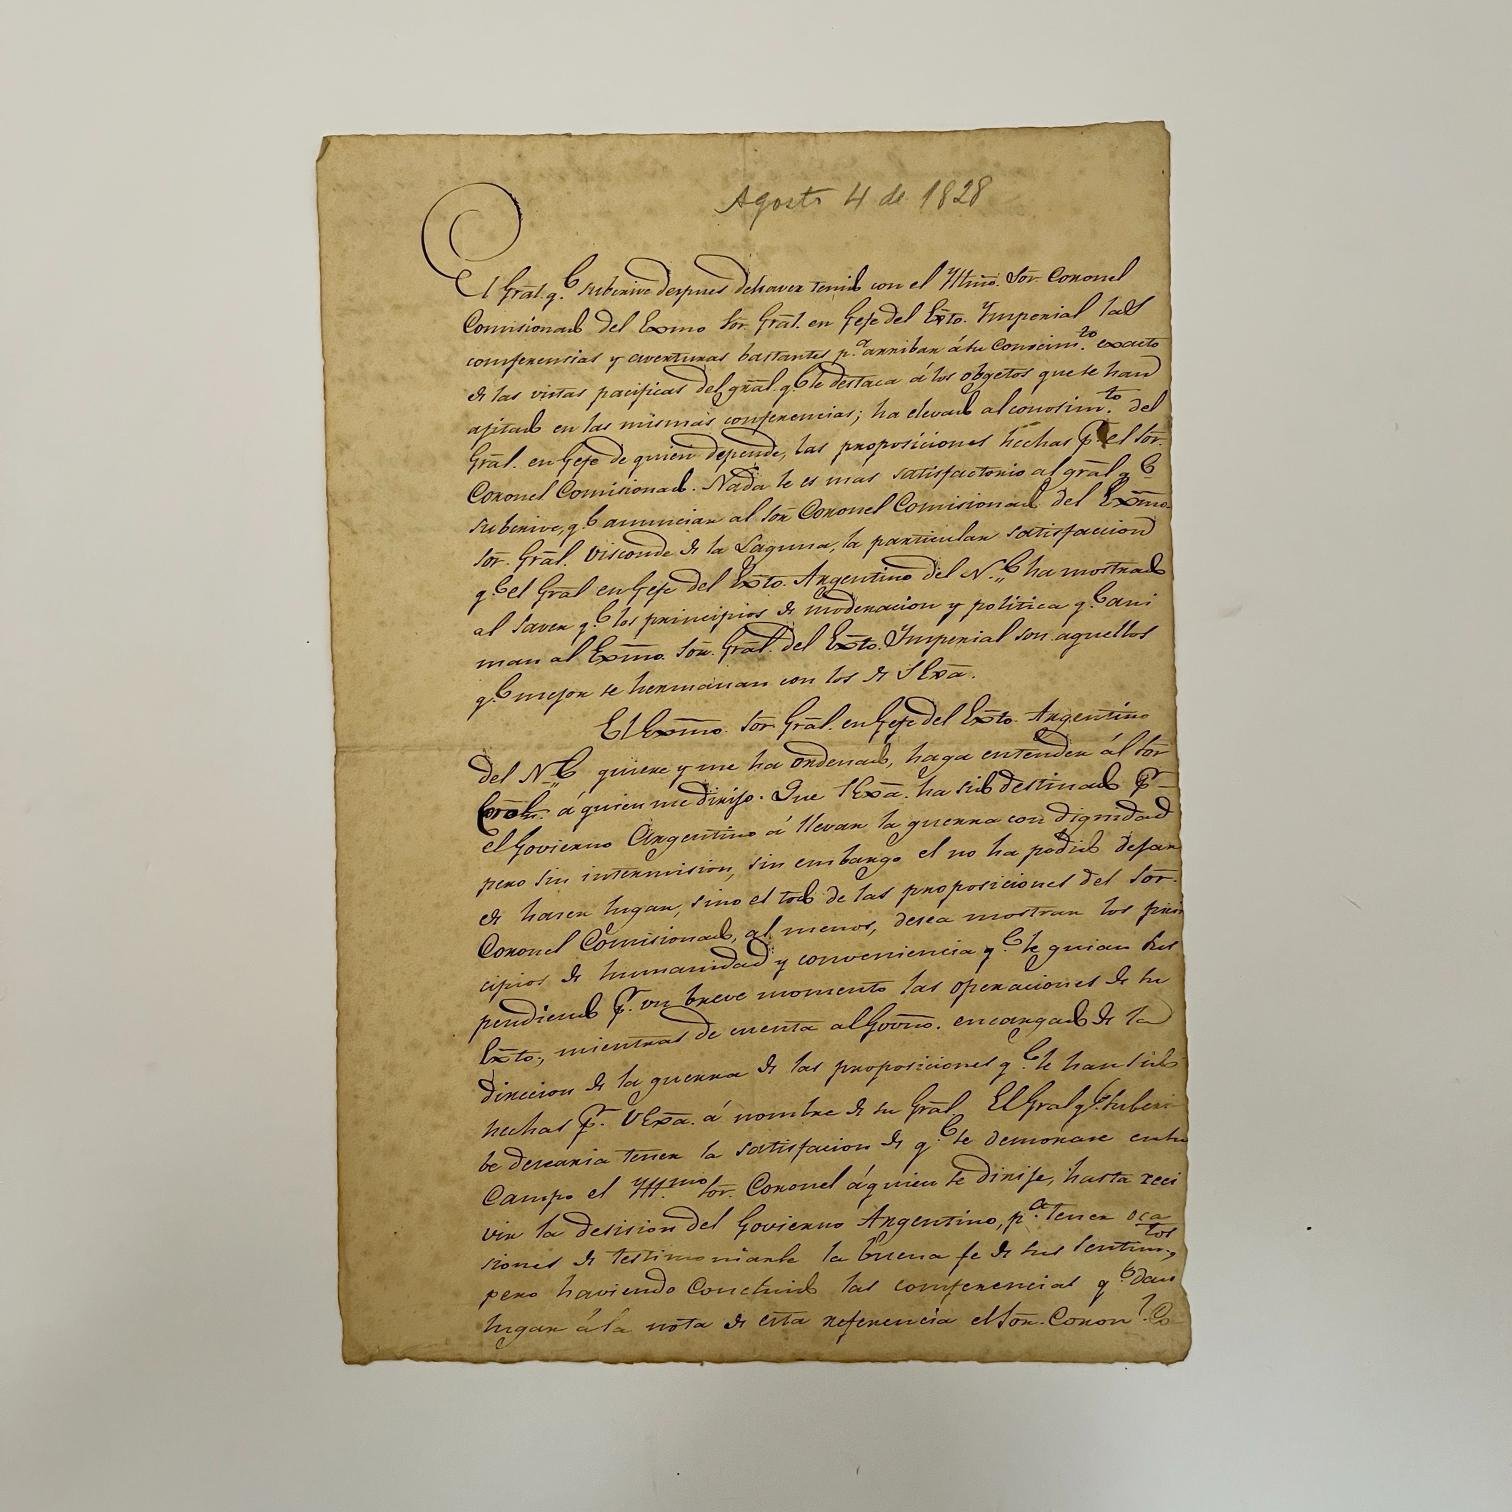 Agosto 4 de 1828
El Grãl. q.e subcrive despues dehaver tenido con el Yllmõ. Sõr. Coronel
Comisionado del Exmo Sõr. Grãl. en Gefe del Exto. Ymperial tales
comferensias y averturas bastantes p.a arribar ásu Conocim.to exacto
de las vistas pacificas del grãl. q.e le destaca á los objetos que se han
ajitado en las mismas conferencias; ha elevado al conosim.to del
Grãl. en Gefe de quien depende, las proposiciones hechas p.r el Sõr.
Coronel Comisionado. Nada le es mas satisfactorio al grãl q.e
subcrive, q.e anunciar al Sõr Coronel Comisionado del Exmo.
Sõr. Grãl. Visconde de la Laguna, la particular satisfaccion
q.e el Grãl en Gefe del Exto. Argentino del N.e ha mostrado
al saver q.e los principios de moderacion y politica q.e ani
man al Exmo. Sõr. Grãl. del Exto. Ymperial son aquellos
q.e mejor se hermanan con los de S Exa.
El Exmo. Sõr. Grãl. en Gefe del Exto. Argentino
del N.e quiere y me ha ordenado, haga entender ál Sõr
Coronl. á quien me dirijo. Que S Exa. ha sido destinado p.r
el Govierno Argentino á llevar la guerra con dignidad
pero sin intermision, sin embargo el no ha podido dejar
de haser lugar, sino el todo de las proposiciones del Sõr.
Coronel Comisionado, al menos, desea mostrar los prin
cipios de humanidad y conveniencia q.e le guian sus
pendiendo p.r un breve momento las operaciones de su
Exto; mientras de cuenta al Govno. encargado de la
direccion de la guerra de las proposiciones q.e le han sido
hechas p.r V Exa. á nombre de su Grãl. El Gral q.e subcri
be desearia tener la satisfacion de q.e se demorase en su
Campo el Yll.mo Sõr. Coronel á quien se dirije, hasta reci
vir la desision del Govierno Argentino, p.a tener oca
siones de testimoniarle la buena fe de sus sentim.tos,
pero haviendo Concluido las comferencias q.e dan
lugar á la nota de esta referencia el Sõr. Coron.l Co